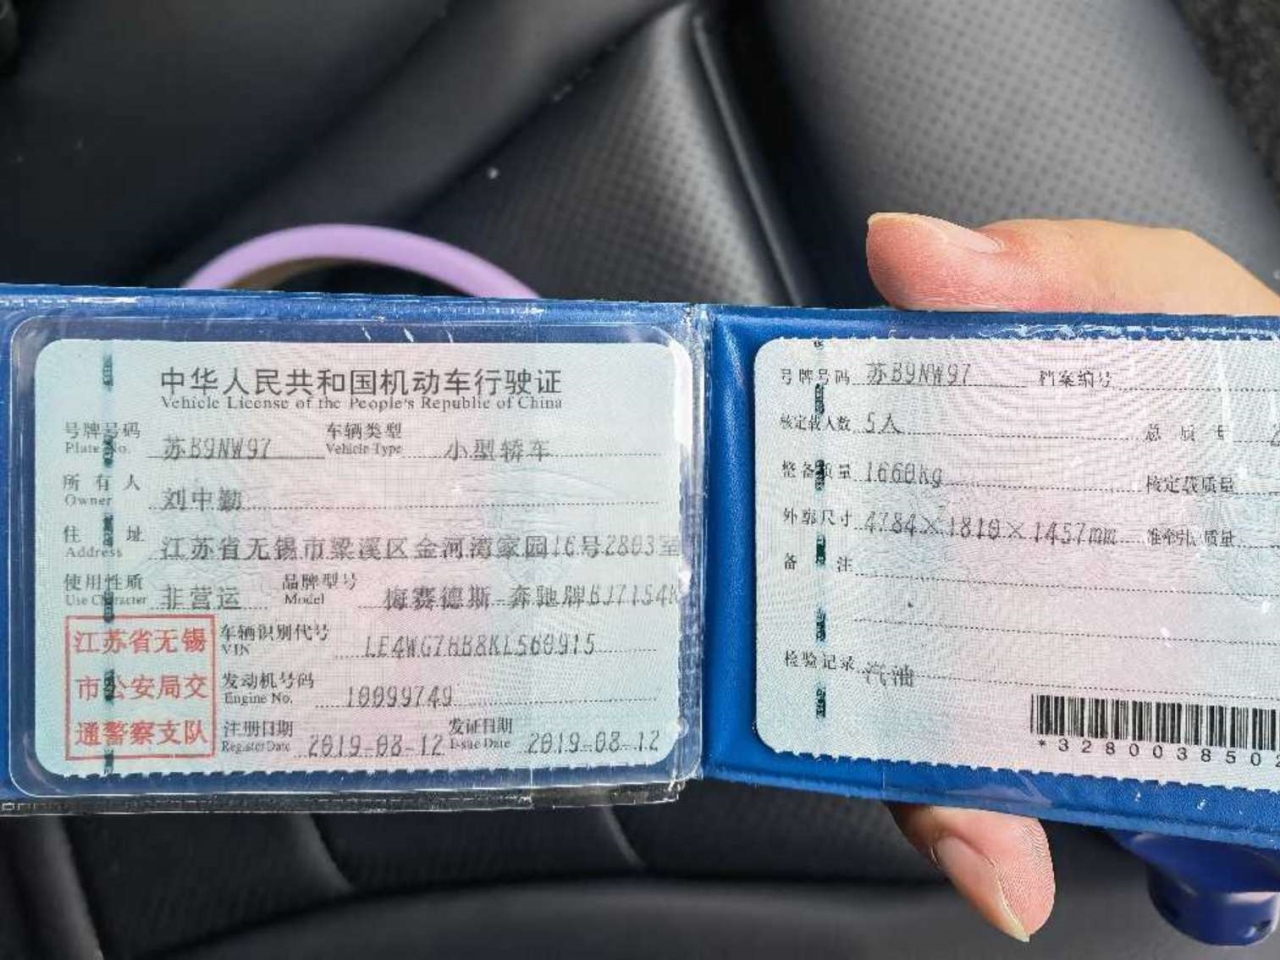 中华人民共和国机动车行驶证
Vehicle License of the People's Republic of China
号牌号码 苏B9NW97 车辆类型 小型轿车
Plate No. Vehicle Type
所有人 刘中勤
Owner
住址 江苏省无锡市梁溪区金河湾家园16号2803室
Address
使用性质 非营运 品牌型号 梅赛德斯-奔驰牌BJ7154
Use Character Model
江苏省无锡
市公安局交
通警察支队
车辆识别代号
VIN
发动机号码 10099749
Engine No.
注册日期 2019-08-12 发证日期 2019-08-12
Register Date Issue Date
号牌号码 苏B9NW97 档案编号
核定载人数 5人 总质量
整备质量 1660kg 核定载质量
外廓尺寸 4784×1810×1457mm 准牵引总质量
备注
检验记录 汽油
*328003850